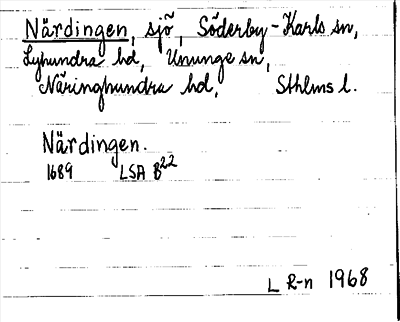 Närdingen, sjö, Söderby-Karls sn,
Lyhundra hd, Ununge sn,
Näringhundra hd, Sthlms l.
Närdingen.
1689 LSA B22
L R-n 1968